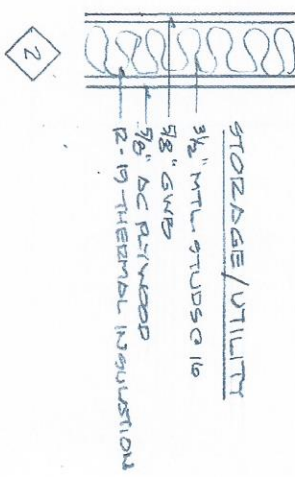 STORAGE/UTILITY
3½" MTL STUDS @ 16
5/8" GWB
5/8" AC PLYWOOD
R-19 THERMAL INSULATION
2